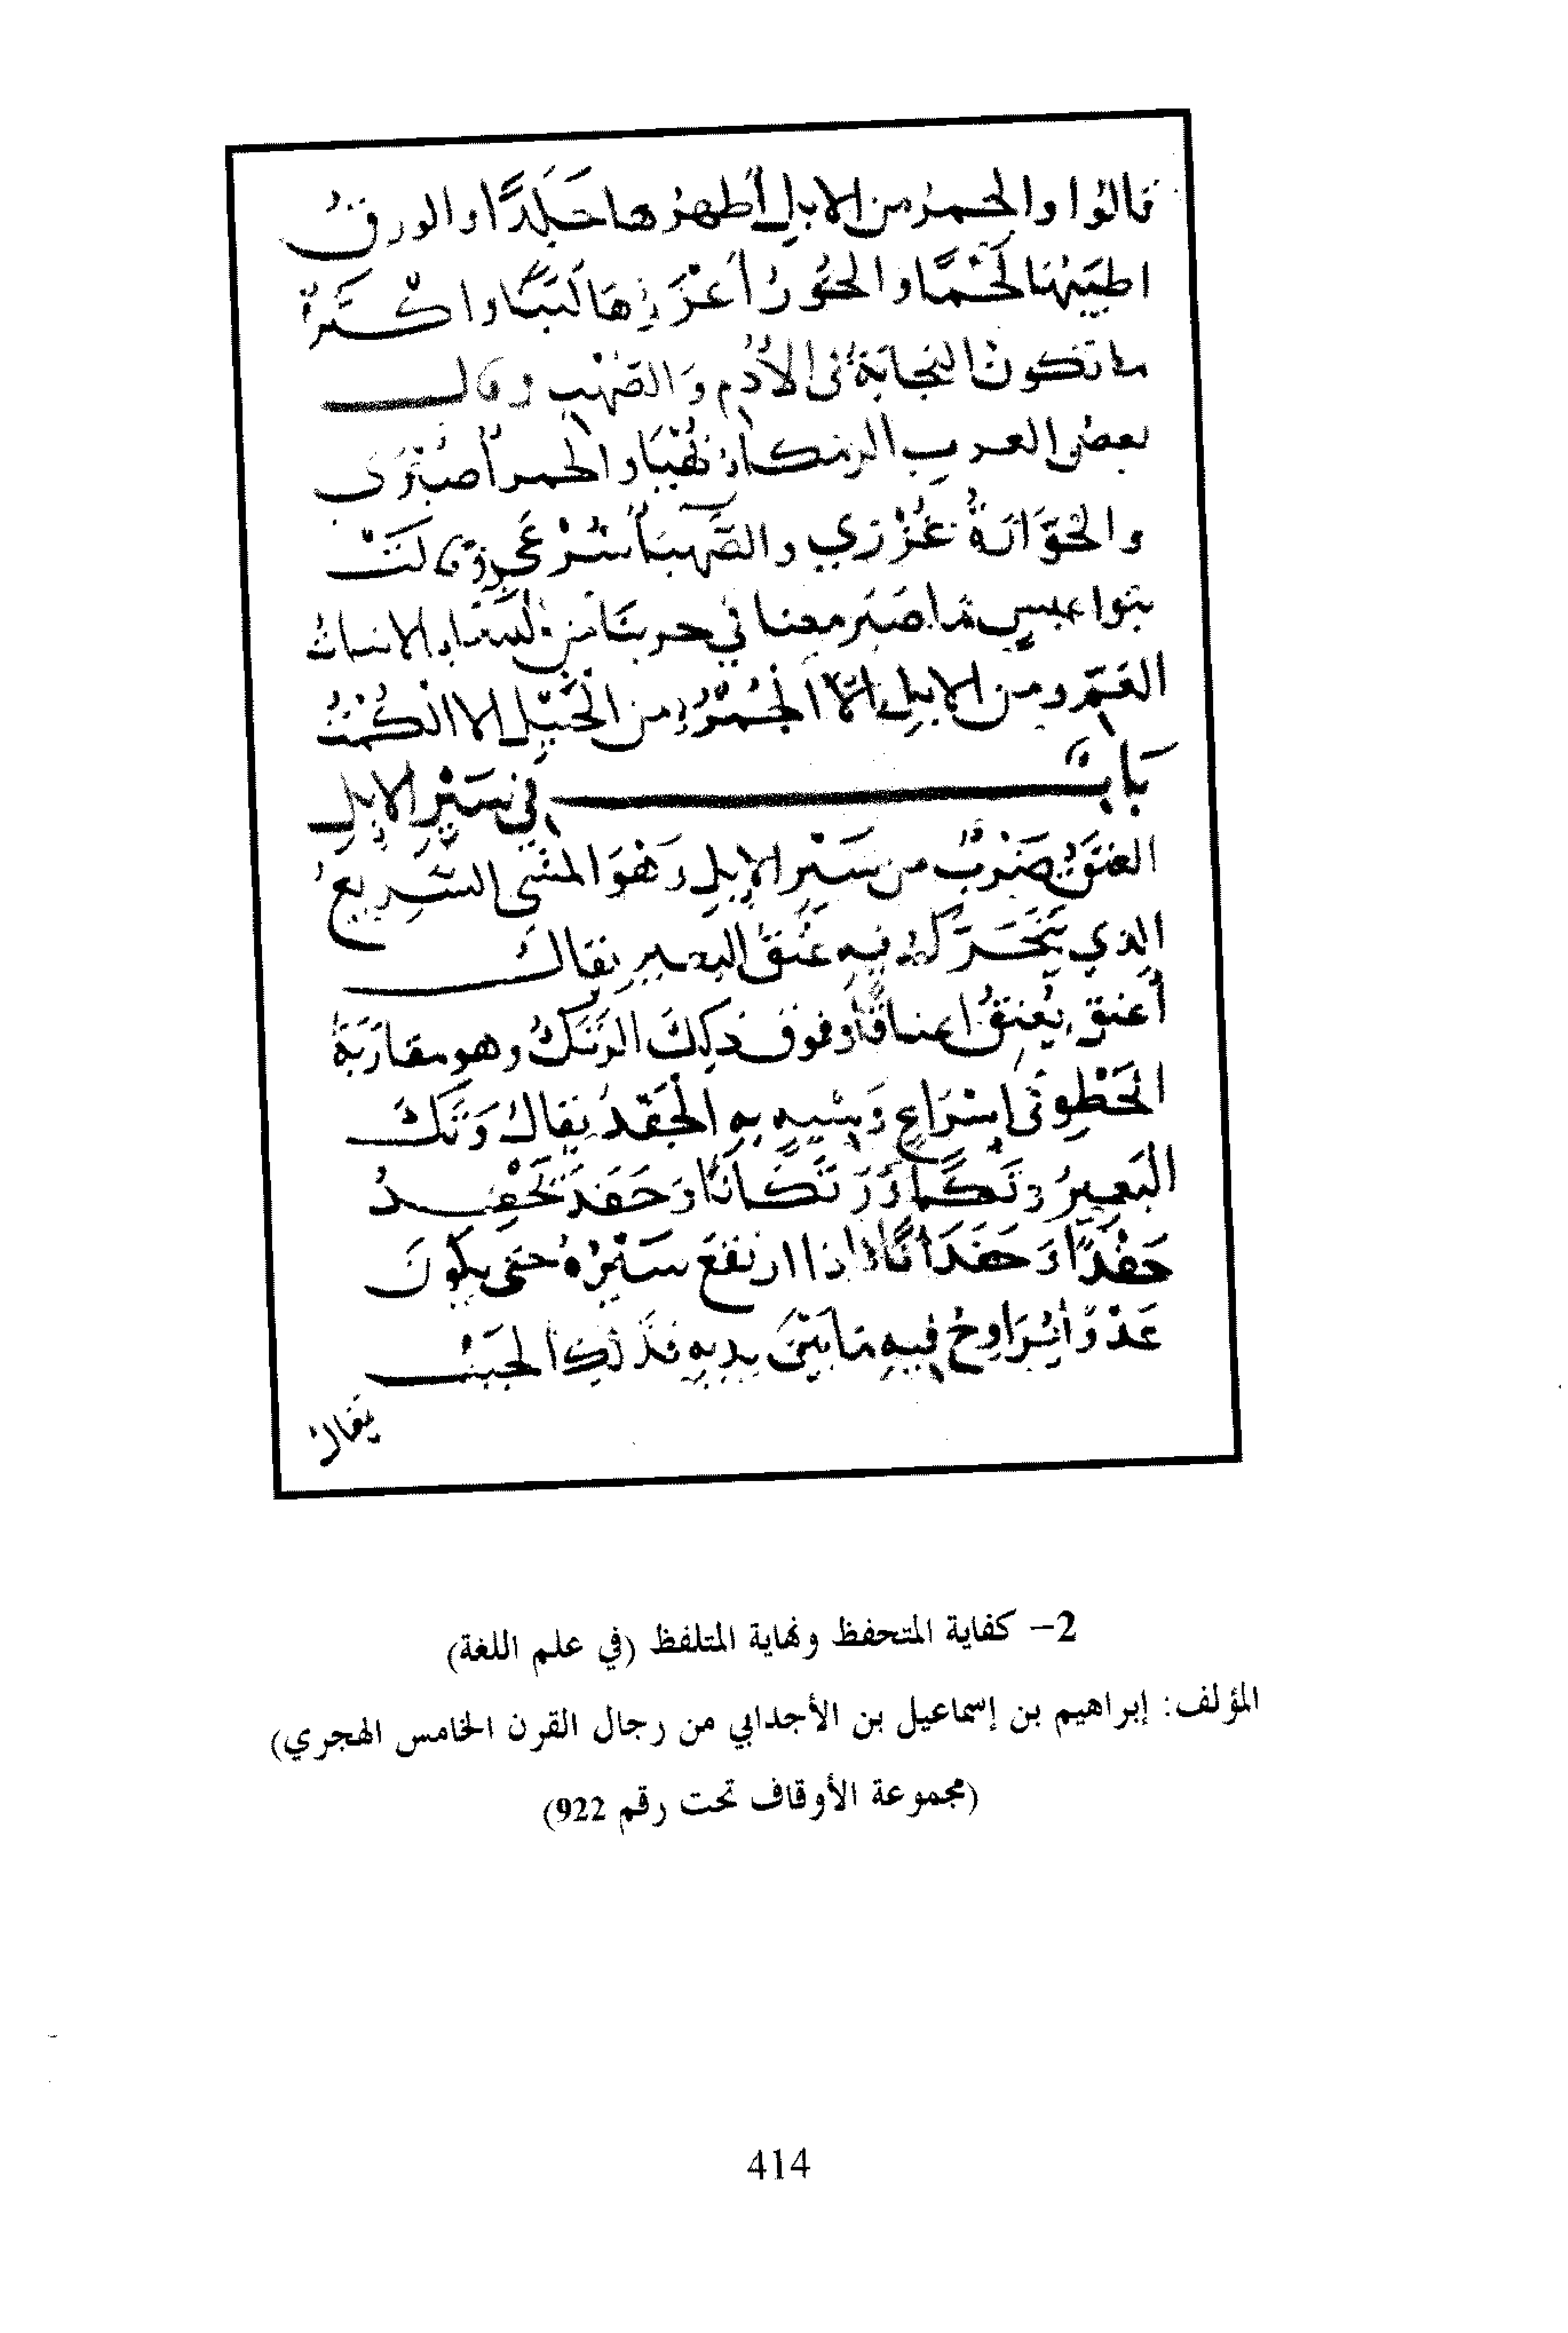 قالوا والحمرُ من الابلِ أطهرُها جَلَدًا والورقُ
اطيَبُهُنا لَحْمًا والخُورُ أعْزَرُها لَبَنًا واكْثَرُ
ما تكون النجابة في الأُدْمِ وَالصُهْبِ وقال
بعض العربِ الرمكاء بُهْيَا والحمرا صُبْرَى
والخَوَّارَةُ غُزْرَي والصَّهبَا سُرْعَى وقالَتْ
بنوا عبسٍ ما صَبَر معنا في حربنَا من النساء الا بنات
العَمِّ ومن الابلِ الَّا الحُمْرُ ومن الخَيْلِ الا الكُمْتُ
بَابٌ في سَيْرِ الإبلِ
العَنَقُ ضَرْبٌ من سَيْرِ الإبلِ وَهْوَ المشى السَّرِيعُ
الذي يَتَحَرَّكُ فيه عُنقُ البعيرِ يقالُ
أعنق يُعنِقُ اعناقًا وفوق ذلِكَ الرَتَكُ وهو مقارَبَةُ
الخَطْوِ في إسْرَاعٍ وَيشبه به الحَفَدُ يقالُ رَتَكَ
البَعِيرُ رَتَكًا وَرَتَكَانًا وَحَفَدَ يَحْفِدُ
حَفْدًا وَحَفَدَانًا فإذا ارتفعَ سَيْرُهُ حتى يكونَ
عَدْوًا يُرَاوِحُ فيه ما بَيْنَ يديهِ فذلِكَ الخَبَبُ
يقالُ
2- كفاية المتحفظ ونهاية المتلفظ (في علم اللغة)
المؤلف: إبراهيم بن إسماعيل بن الأجدابي من رجال القرن الخامس الهجري)
(مجموعة الأوقاف تحت رقم 922)
414